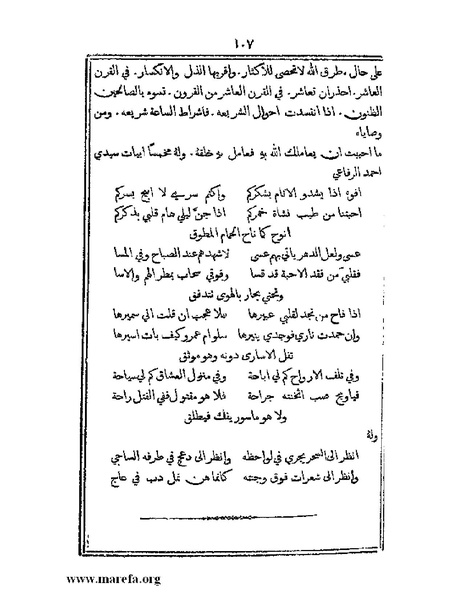 ١٠٧
على حال. طرق الله لا تحصى للاكثار. واقربها الذل والانكسار. في القرن
العاشر. احذر ان تعاشر. في القرن العاشر من القرون. تسوء بالصالحين
الظنون. اذا انفسدت احوال الشريعه. فاشراط الساعة سريعه. ومن
وصاياه
ما احببت ان يعاملك الله به فعامل به خلقه. وله مخمساً ابيات سيدي
احمد الرفاعي
افوه اذا يشدو الانام بشكركم واكتم سري لا ابيح بسركم
احبتنا من طيب نشاة خمركم اذا جنّ ليلي هام قلبي بذكركم
انوح كما ناح الحمام المطوق
عسى ولعل الدهر ياتي بهم عسى لاشهدهم عند الصباح وفي المسا
فقلبي من فقد الاحبة قد قسا وفوقي سحاب يمطر الهم والاسا
وتحتي بحار بالهوى تتدفق
اذا فاح من نجد لقلبي عبيرها فلا عجب ان قلت الي سميرها
وان خمدت ناري فوجدي ينيرها سلوا ام عمرو كيف بات اسيرها
تفك الاسارى دونه وهو موثق
وفي تلف الارواح كم لي اباحة وفي مقتول العشاق كم لي سياحة
فياويح صب اثخنته جراحة فلا هو مقتول ففي القتل راحة
ولا هو ماسور يفك فيطلق
وله
انظر الى السحر يجري في لواحظه وانظر الى دعج في طرفه الساجي
وانظر الى شعرات فوق وجنته كانما هن نمل دب في عاج
www.marefa.org